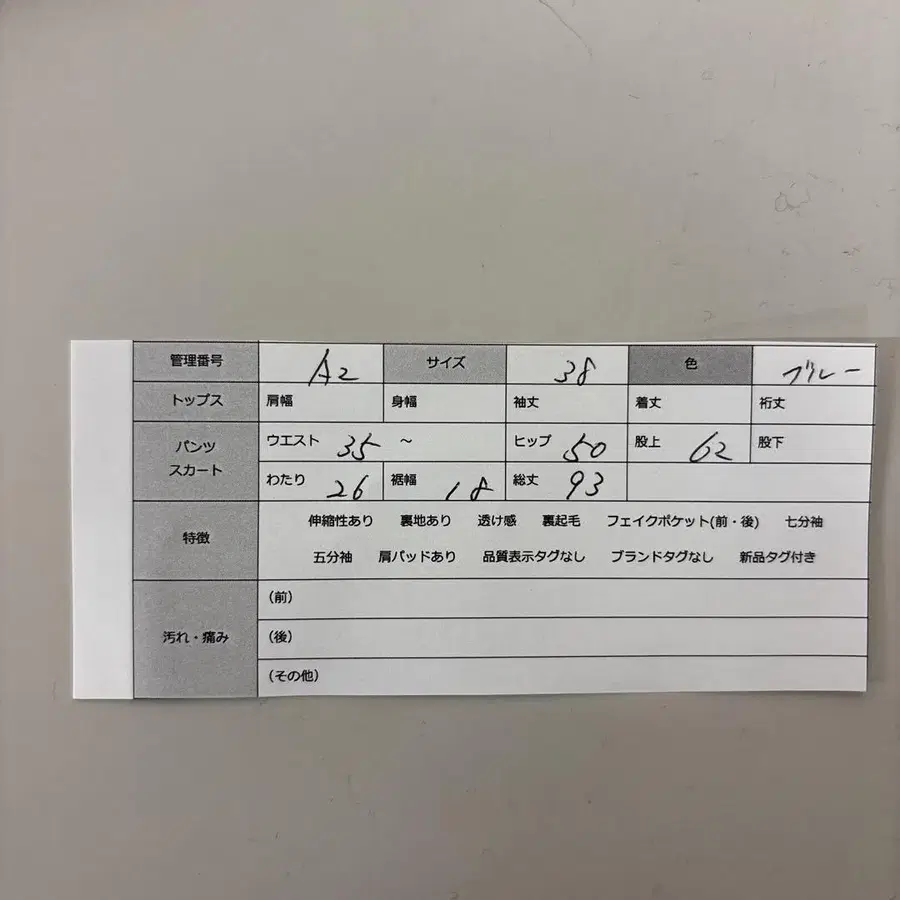 管理番号 A2 サイズ 38 色 グレー
トップス 肩幅 身幅 袖丈 着丈 裄丈
パンツ スカート ウエスト 35 ～ ヒップ 50 股上 62 股下
わたり 26 裾幅 18 総丈 93
特徴 伸縮性あり 裏地あり 透け感 裏起毛 フェイクポケット(前・後) 七分袖
五分袖 肩パッドあり 品質表示タグなし ブランドタグなし 新品タグ付き
汚れ・痛み (前)
(後)
(その他)